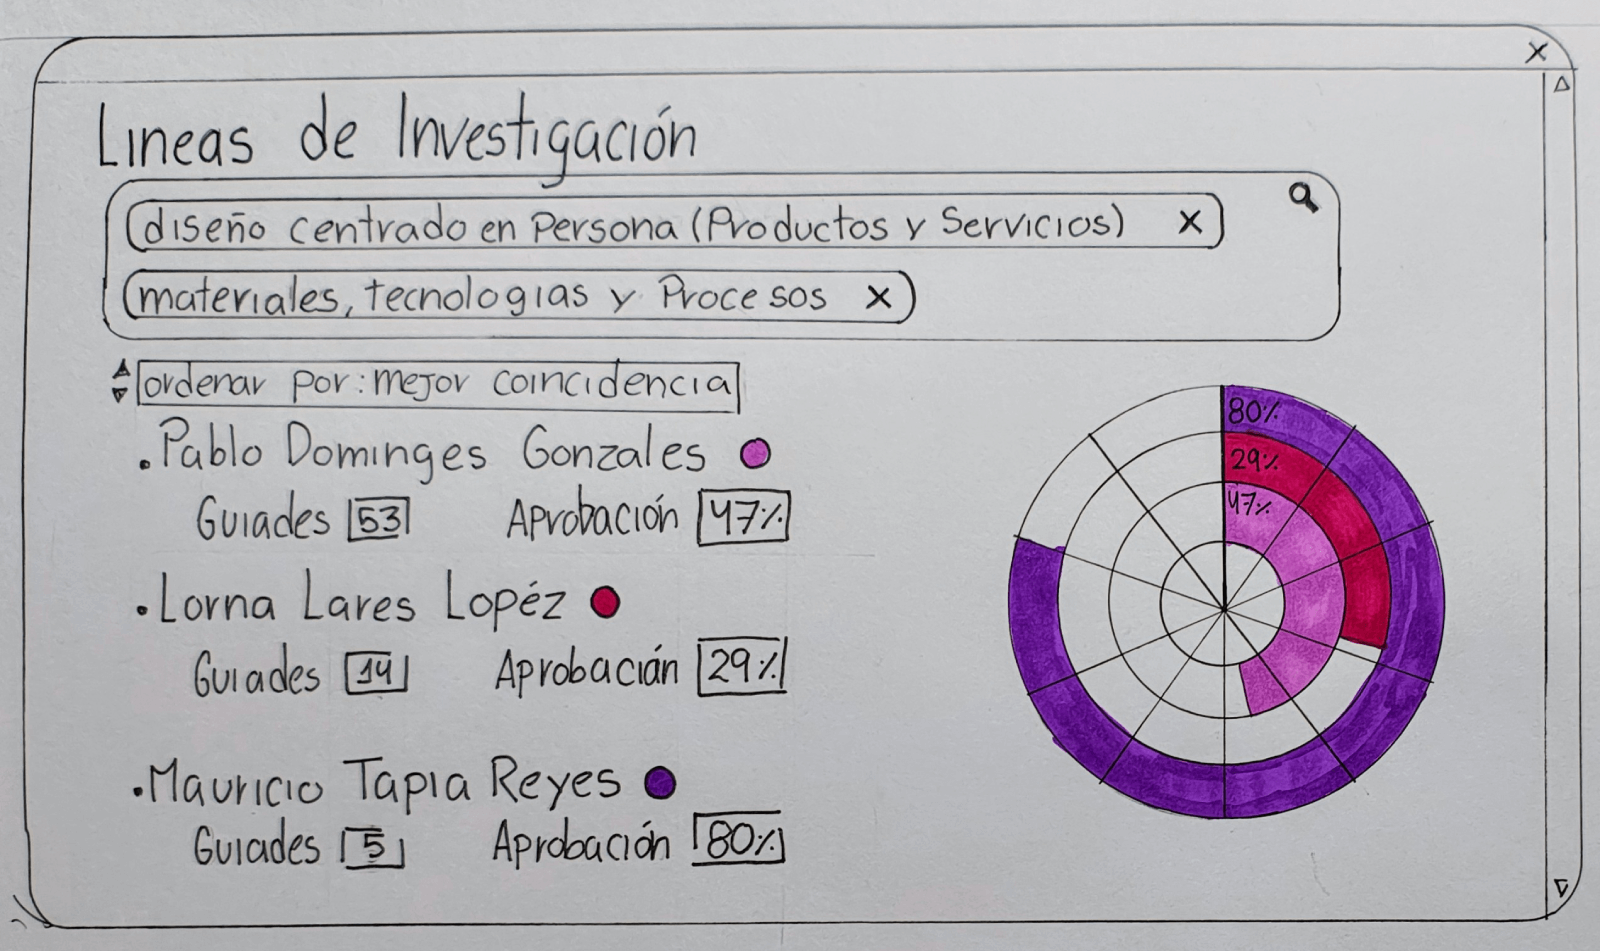 Lineas de Investigación
diseño centrado en Persona (Productos y Servicios) X
materiales, tecnologias y Procesos X
ordenar por: mejor coincidencia
. Pablo Dominges Gonzales
Guiades 53 Aprobación 47%
. Lorna Lares Lopéz
Guiades 14 Aprobación 29%
. Mauricio Tapia Reyes
Guiades 5 Aprobación 80%
80%
29%
47%